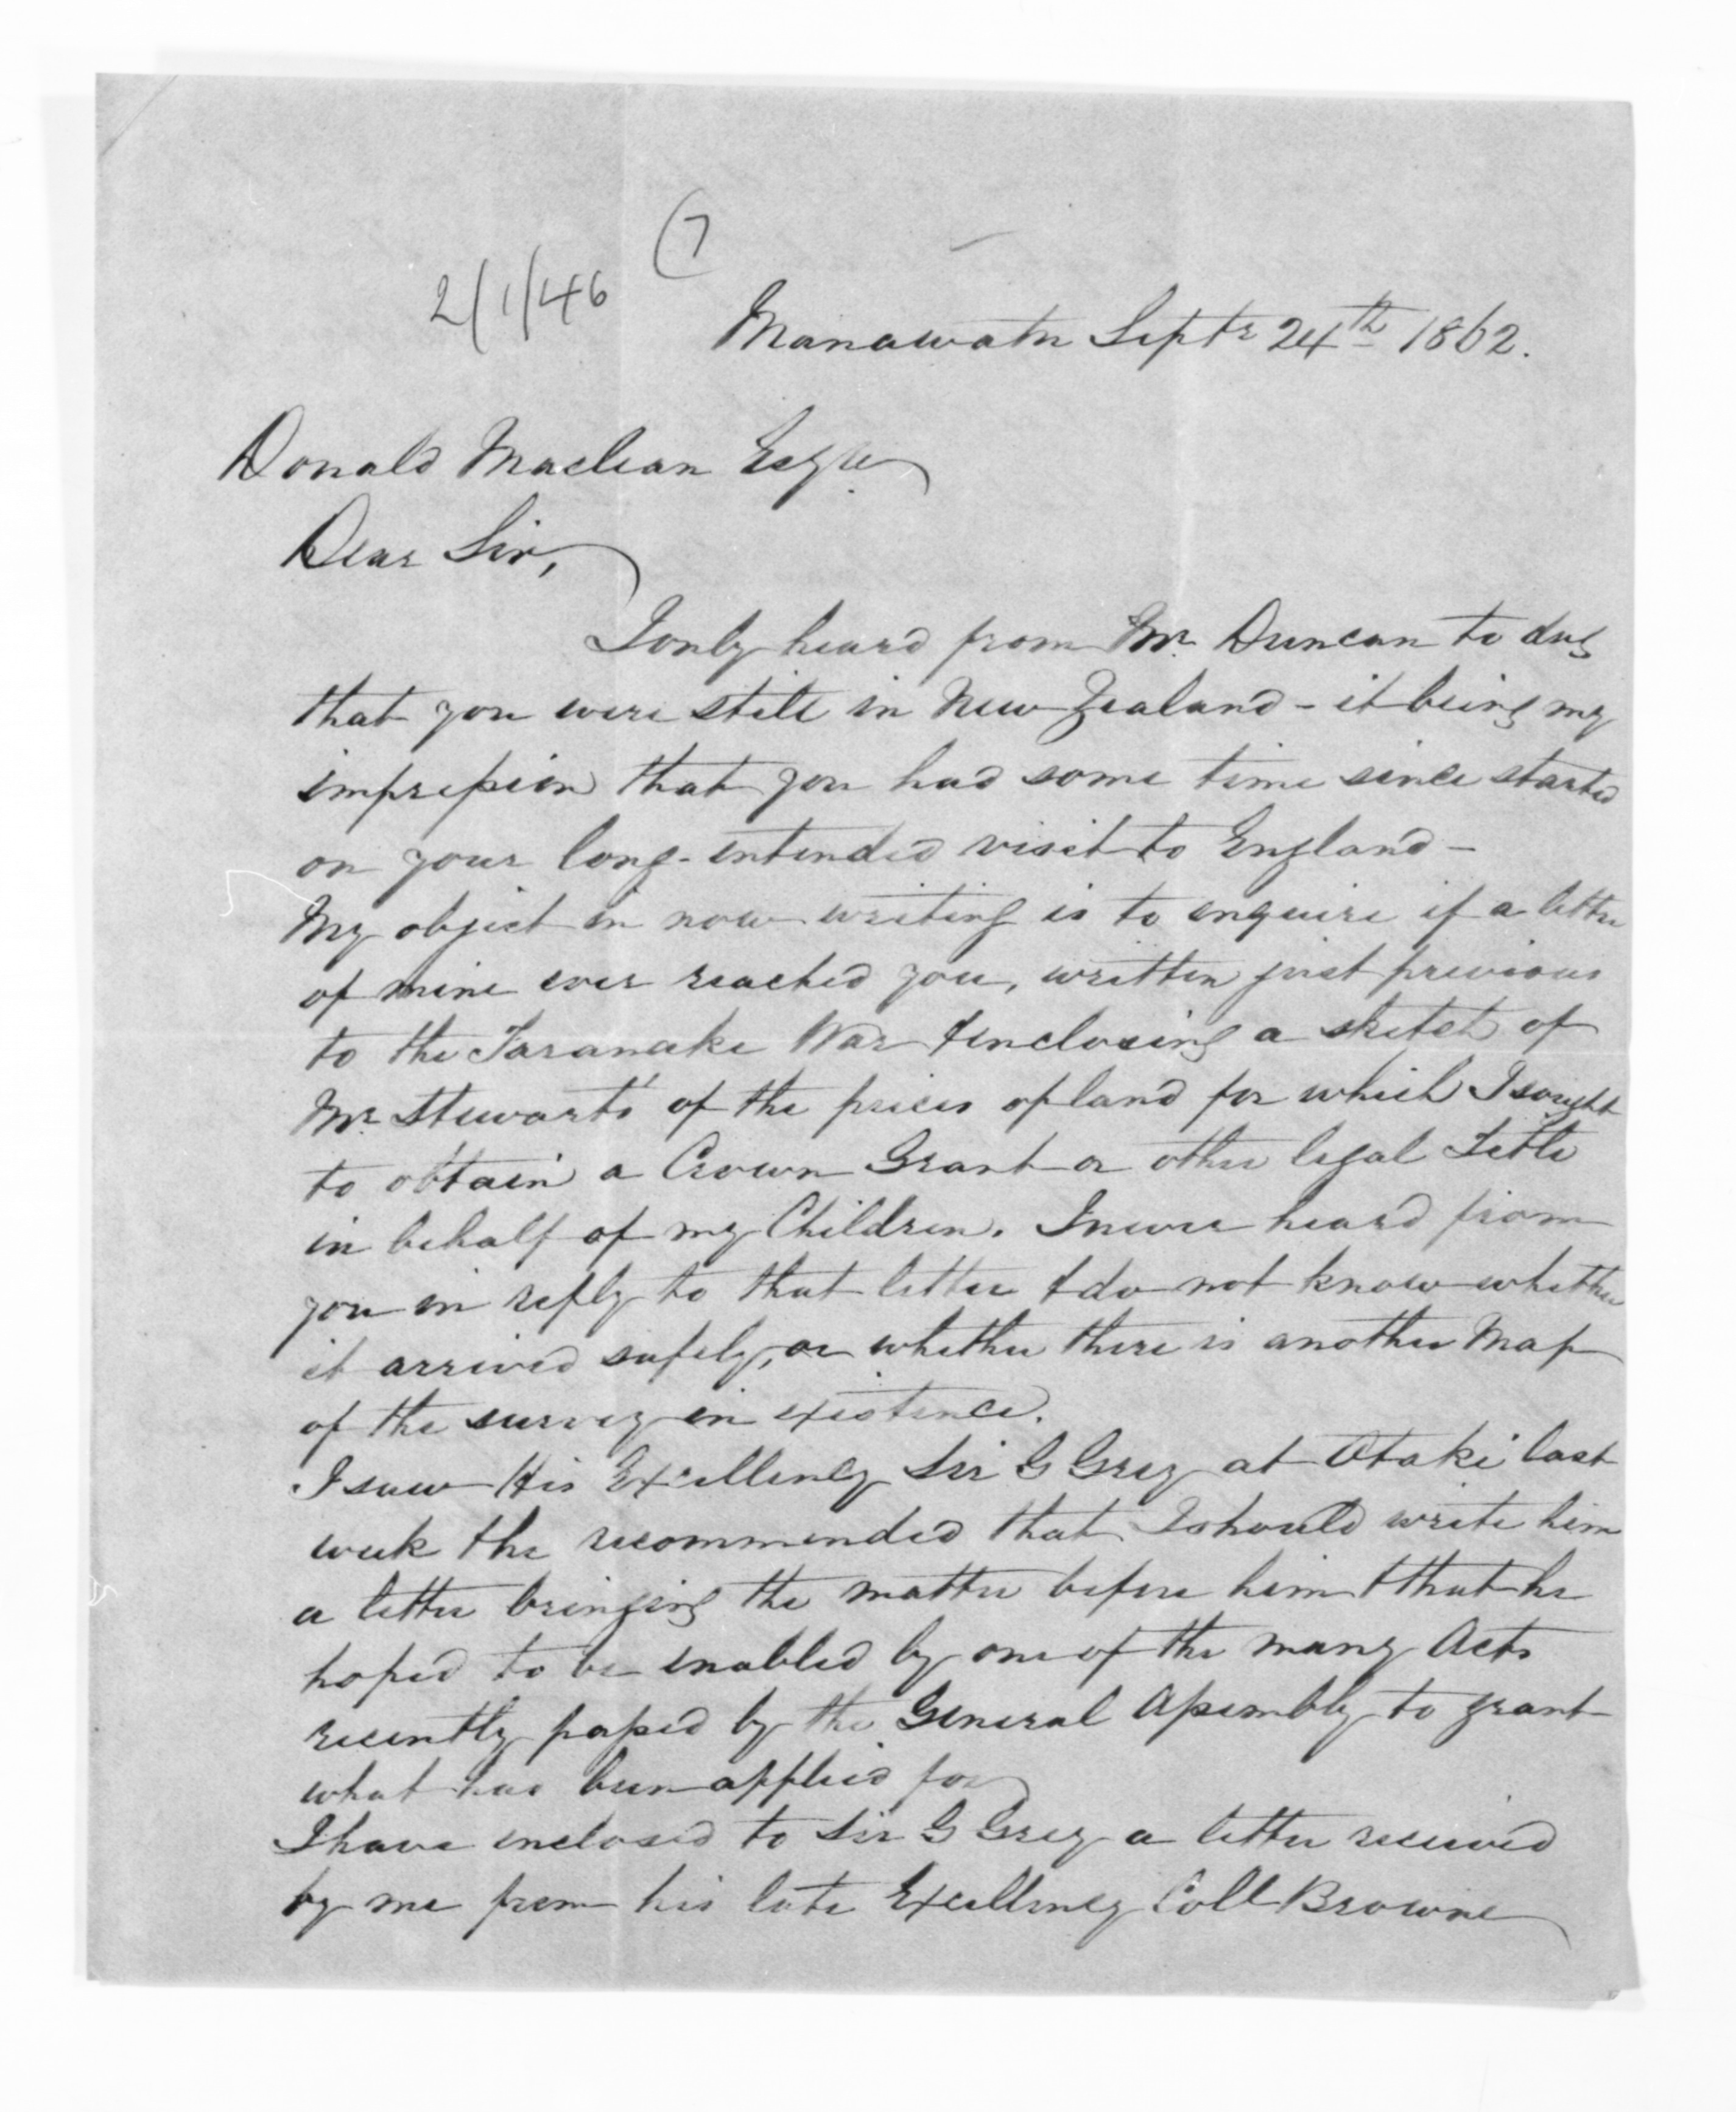 (7
2/1/46
Manawatu Septr 24th 1862.
Donald Maclean Esqre
Dear Sir,
I only heard from Mr. Duncan to day
that you were still in New Zealand - it being my
impression that you had some time since started
on your long-intended visit to England -
My object in now writing is to enquire if a letter
of mine ever reached you, written just previous
to the Taranaki War & enclosing a sketch of
Mr. Stewart's of the pieces of land for which I sought
to obtain a Crown Grant or other legal Title
in behalf of my Children. I never heard from
you in reply to that letter & do not know whether
it arrived safely, or whether there is another Map
of the survey in existence.
I saw His Excellency Sir G Grey at Otaki last
week & he recommended that I should write him
a letter bringing the matter before him & that he
hoped to be enabled by one of the many Acts
recently passed by the General Assembly to grant
what has been applied for
I have enclosed to Sir G Grey a letter received
by me from his late Excellency Coll Browne